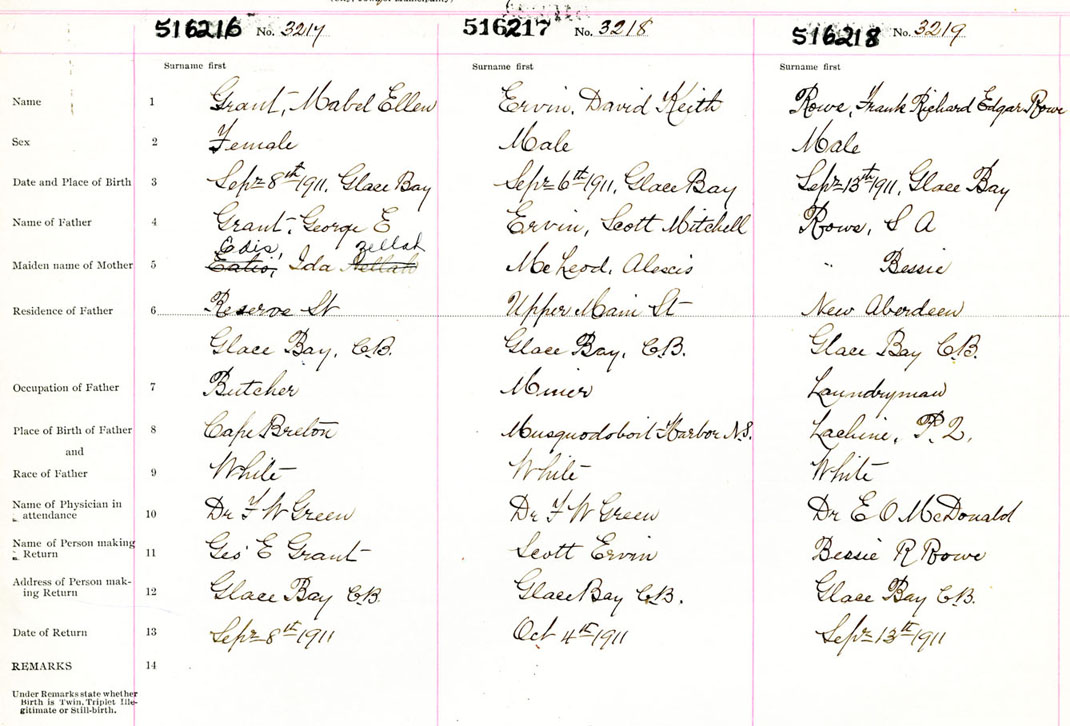 516216 No. 3217 516217 No. 3218 516218 No. 3219
Surname first Surname first Surname first
Name 1 Grant, Mabel Ellen Ervin, David Keith Rowe, Frank Richard Edgar Rowe
Sex 2 Female Male Male
Date and Place of Birth 3 Sept 8th 1911, Glace Bay Sept 6th 1911, Glace Bay Sept 13th 1911, Glace Bay
Name of Father 4 Grant, George E Ervin, Scott Mitchell Rowe, S A
Edis, Zellah
Maiden name of Mother 5 Ida Nellah McLeod, Alexis " Bessie
Residence of Father 6 Reserve St Upper Main St New Aberdeen
Glace Bay, C.B. Glace Bay, C.B. Glace Bay C.B.
Occupation of Father 7 Butcher Miner Laundryman
Place of Birth of Father 8 Cape Breton Musquodoboit Harbor N.S. Lachine, P.Q.
and
Race of Father 9 White White White
Name of Physician in attendance 10 Dr F W Green Dr F W Green Dr E O McDonald
Name of Person making Return 11 Geo E Grant Scott Ervin Bessie R Rowe
Address of Person mak-
ing Return 12 Glace Bay C.B. Glace Bay C.B. Glace Bay C.B.
Date of Return 13 Sept 8th 1911 Oct 4th 1911 Sept 13th 1911
REMARKS 14
Under Remarks state whether
Birth is Twin, Triplet Ille-
gitimate or Still-birth.